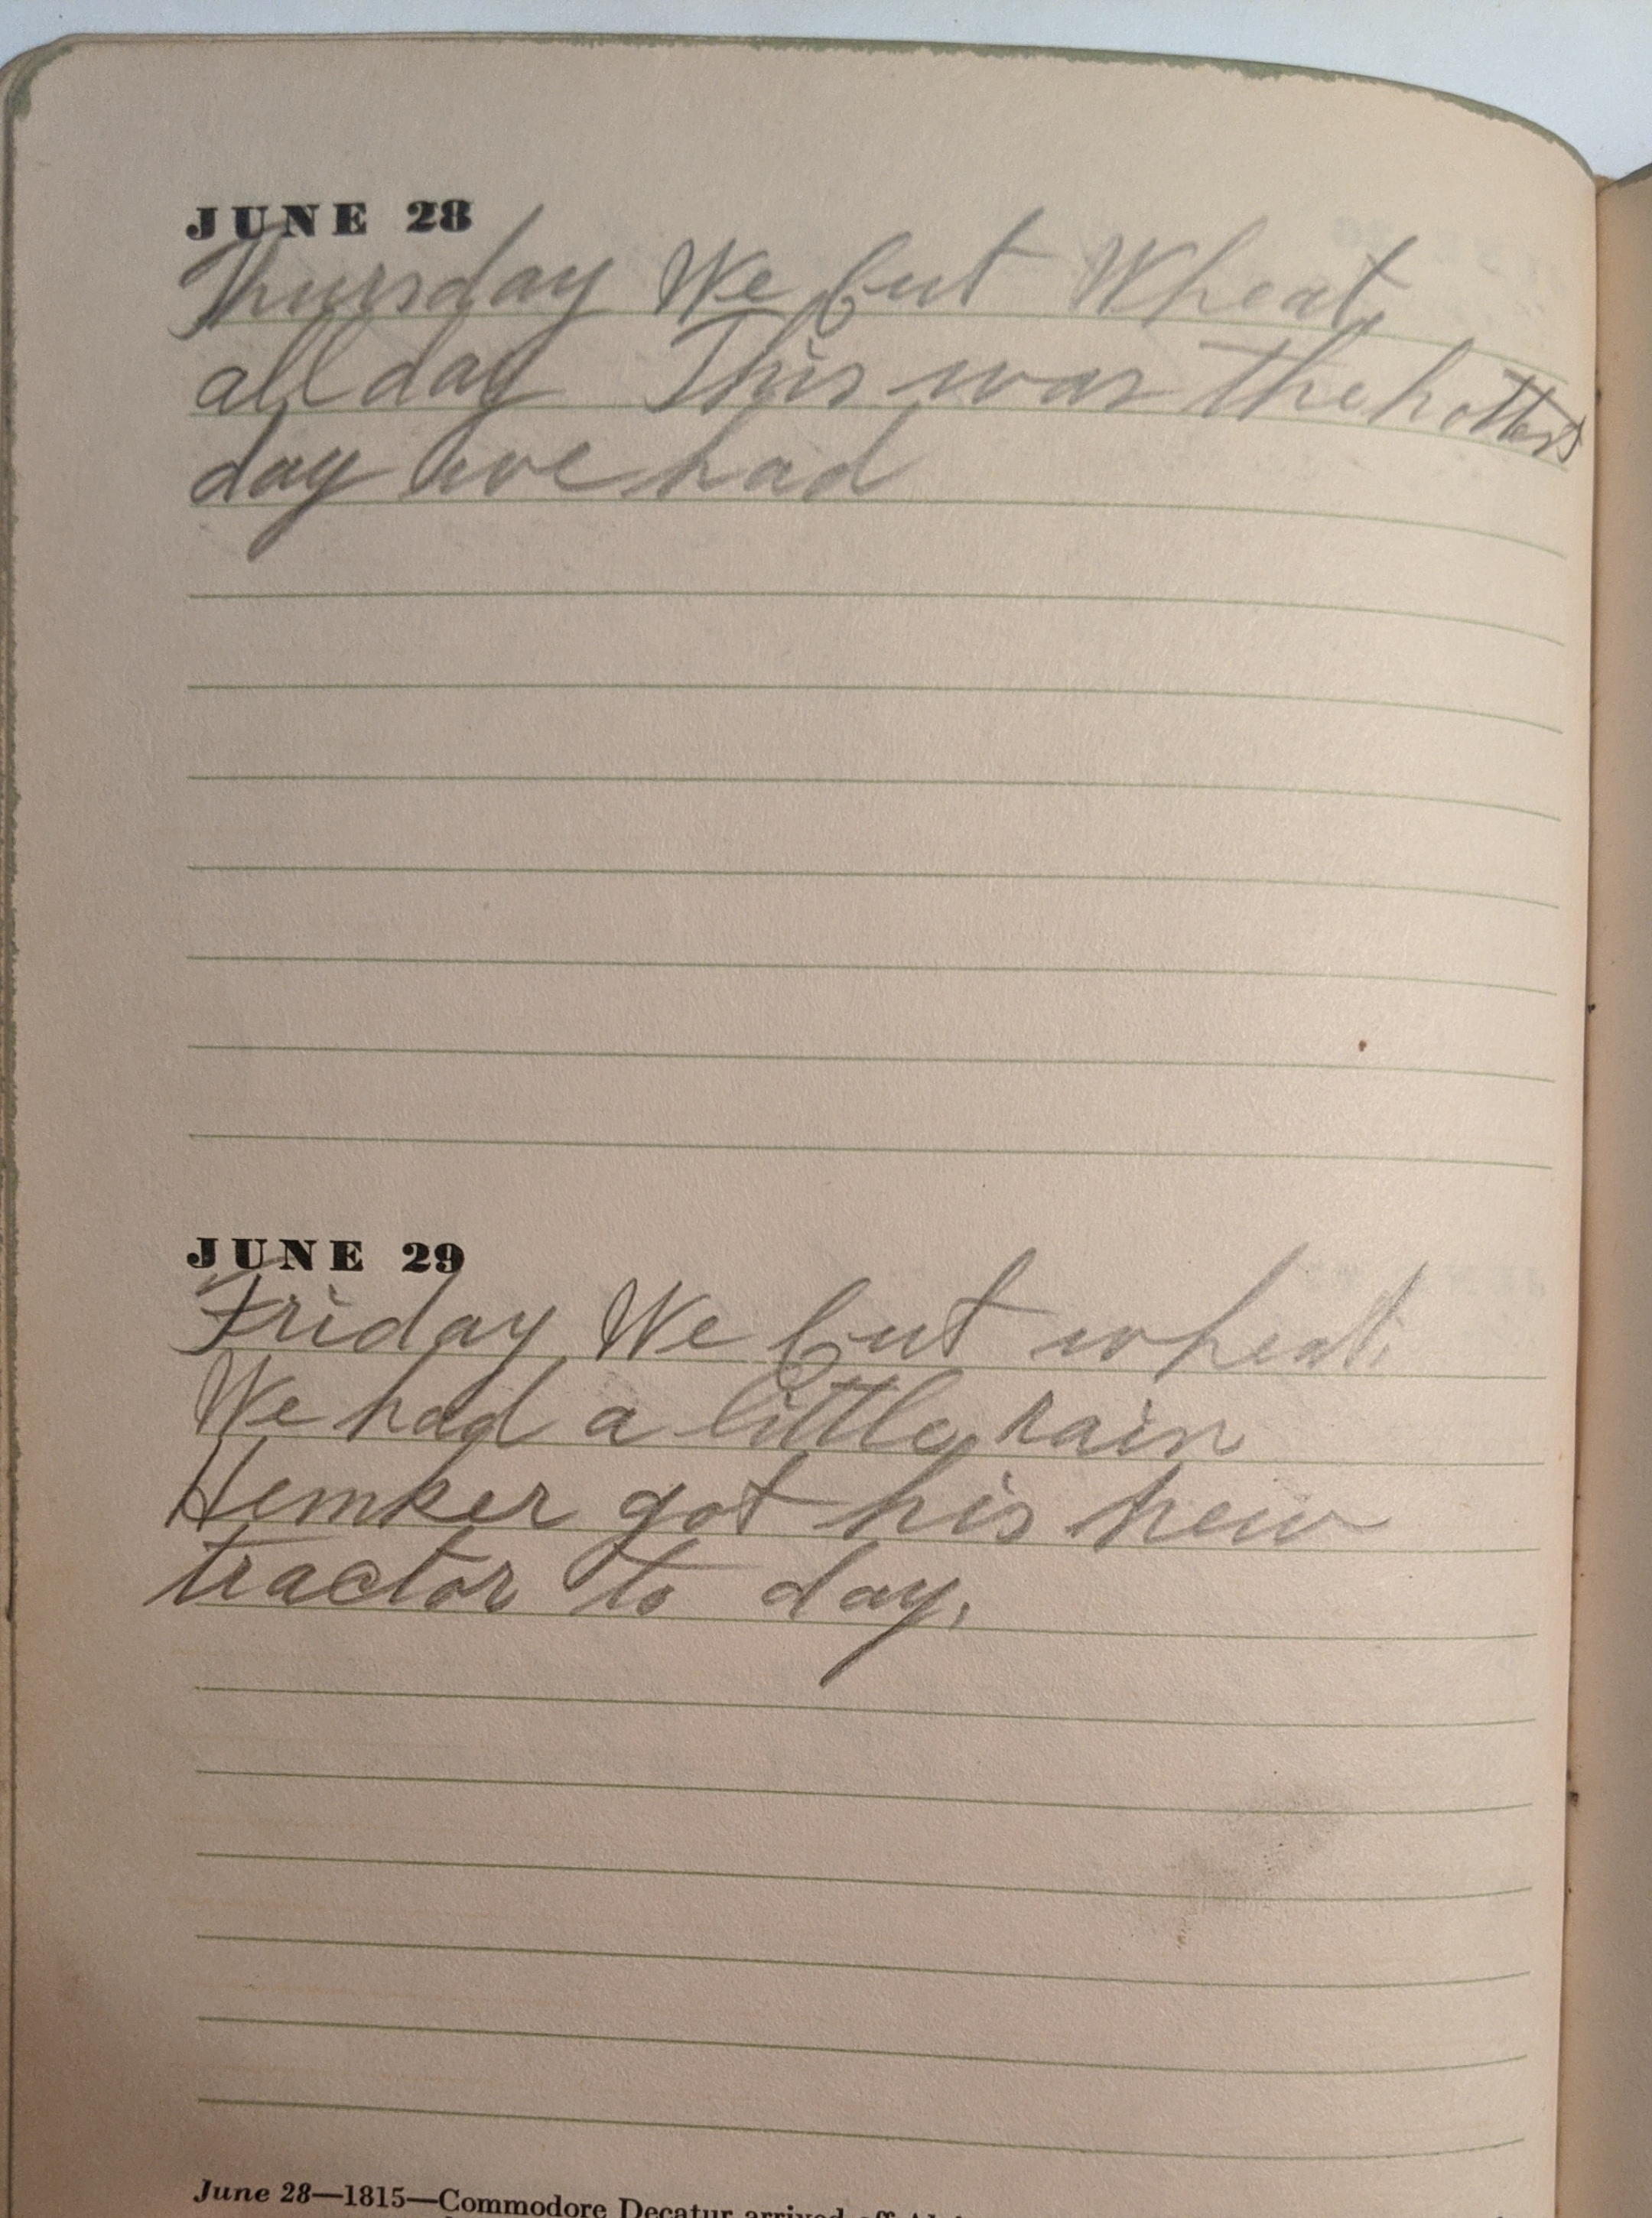 JUNE 28
Thursday We Cut Wheat,
all day This was the hottest
day we had
JUNE 29
Friday We Cut wheat.
We had a little rain
Hemker got his new
tractor to day.
June 28—1815—Commodore Decatur arrived off